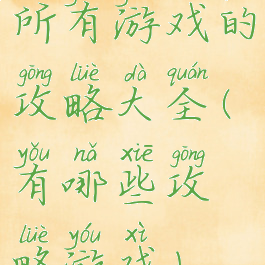 所有游戏的
gōng lüè dà quán
攻略大全(
yǒu nǎ xiē gōng
有哪些攻
lüè yóu xì
略游戏)